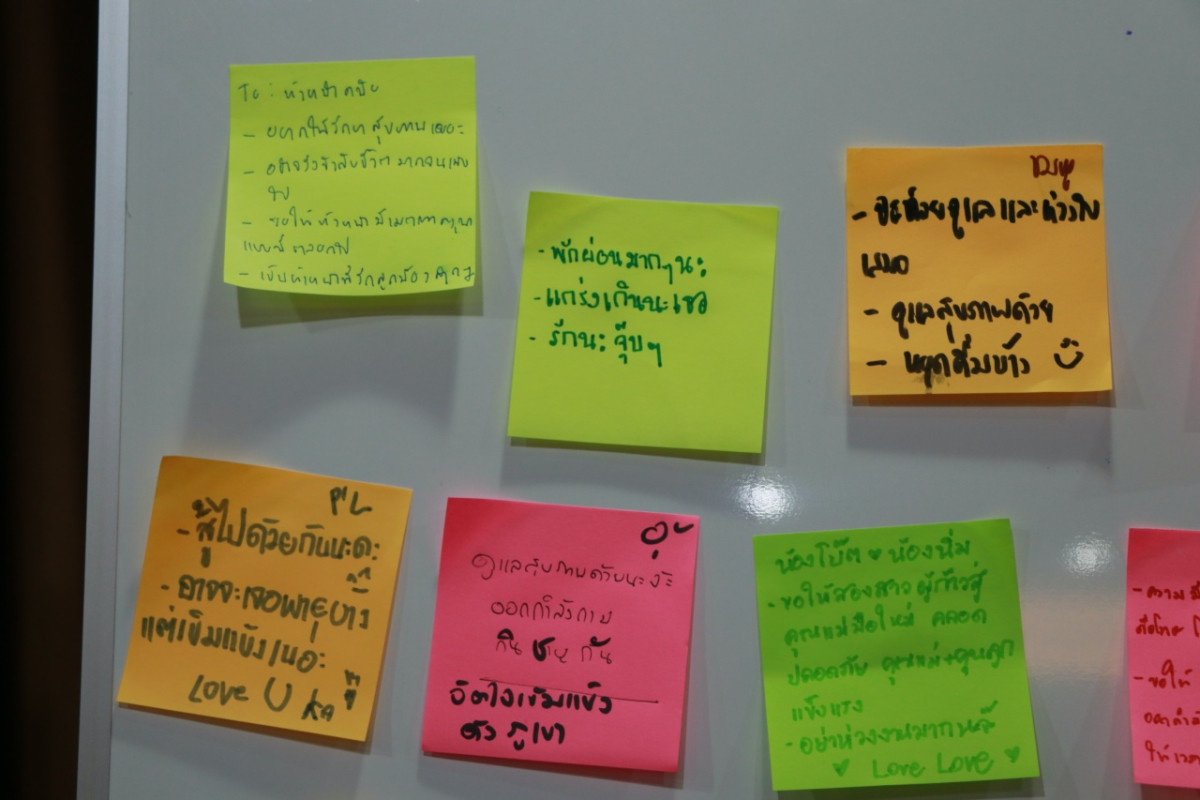 To : หัวหน้า
- อยากให้รักษาสุขภาพเยอะ
ไป
- ขอให้หัวหน้ามีเมตตากรุณา
แบบนี้ตลอดไป
- พักผ่อนมากๆนะ
- แกร่งเกินนะเธอ
- รักนะ จุ๊บๆ
- จะช่วยดูแลและห่วงใย
เสมอ
- ดูแลสุขภาพด้วย
- หยุดดื่มข้าว
- สู้ไปด้วยกันนะคะ
- อาจจะเจอพายุบ้าง
แต่เข้มแข็งเนอะ
Love
ดูแลสุขภาพด้วยนะจ๊ะ
ออกกำลังกาย
กิน กัน
จิตใจเข้มแข็ง
ดัง ภูเขา
น้องโบ๊ต ♥ น้องนิ่ม
- ขอให้สองสาวผู้ก้าวสู่
คุณแม่มือใหม่ คลอด
ปลอดภัย คุณแม่+คุณลูก
แข็งแรง
- อย่าห่วงงานมากนะจ๊ะ
♥ Love Love ♥
- ความ
- ขอให้